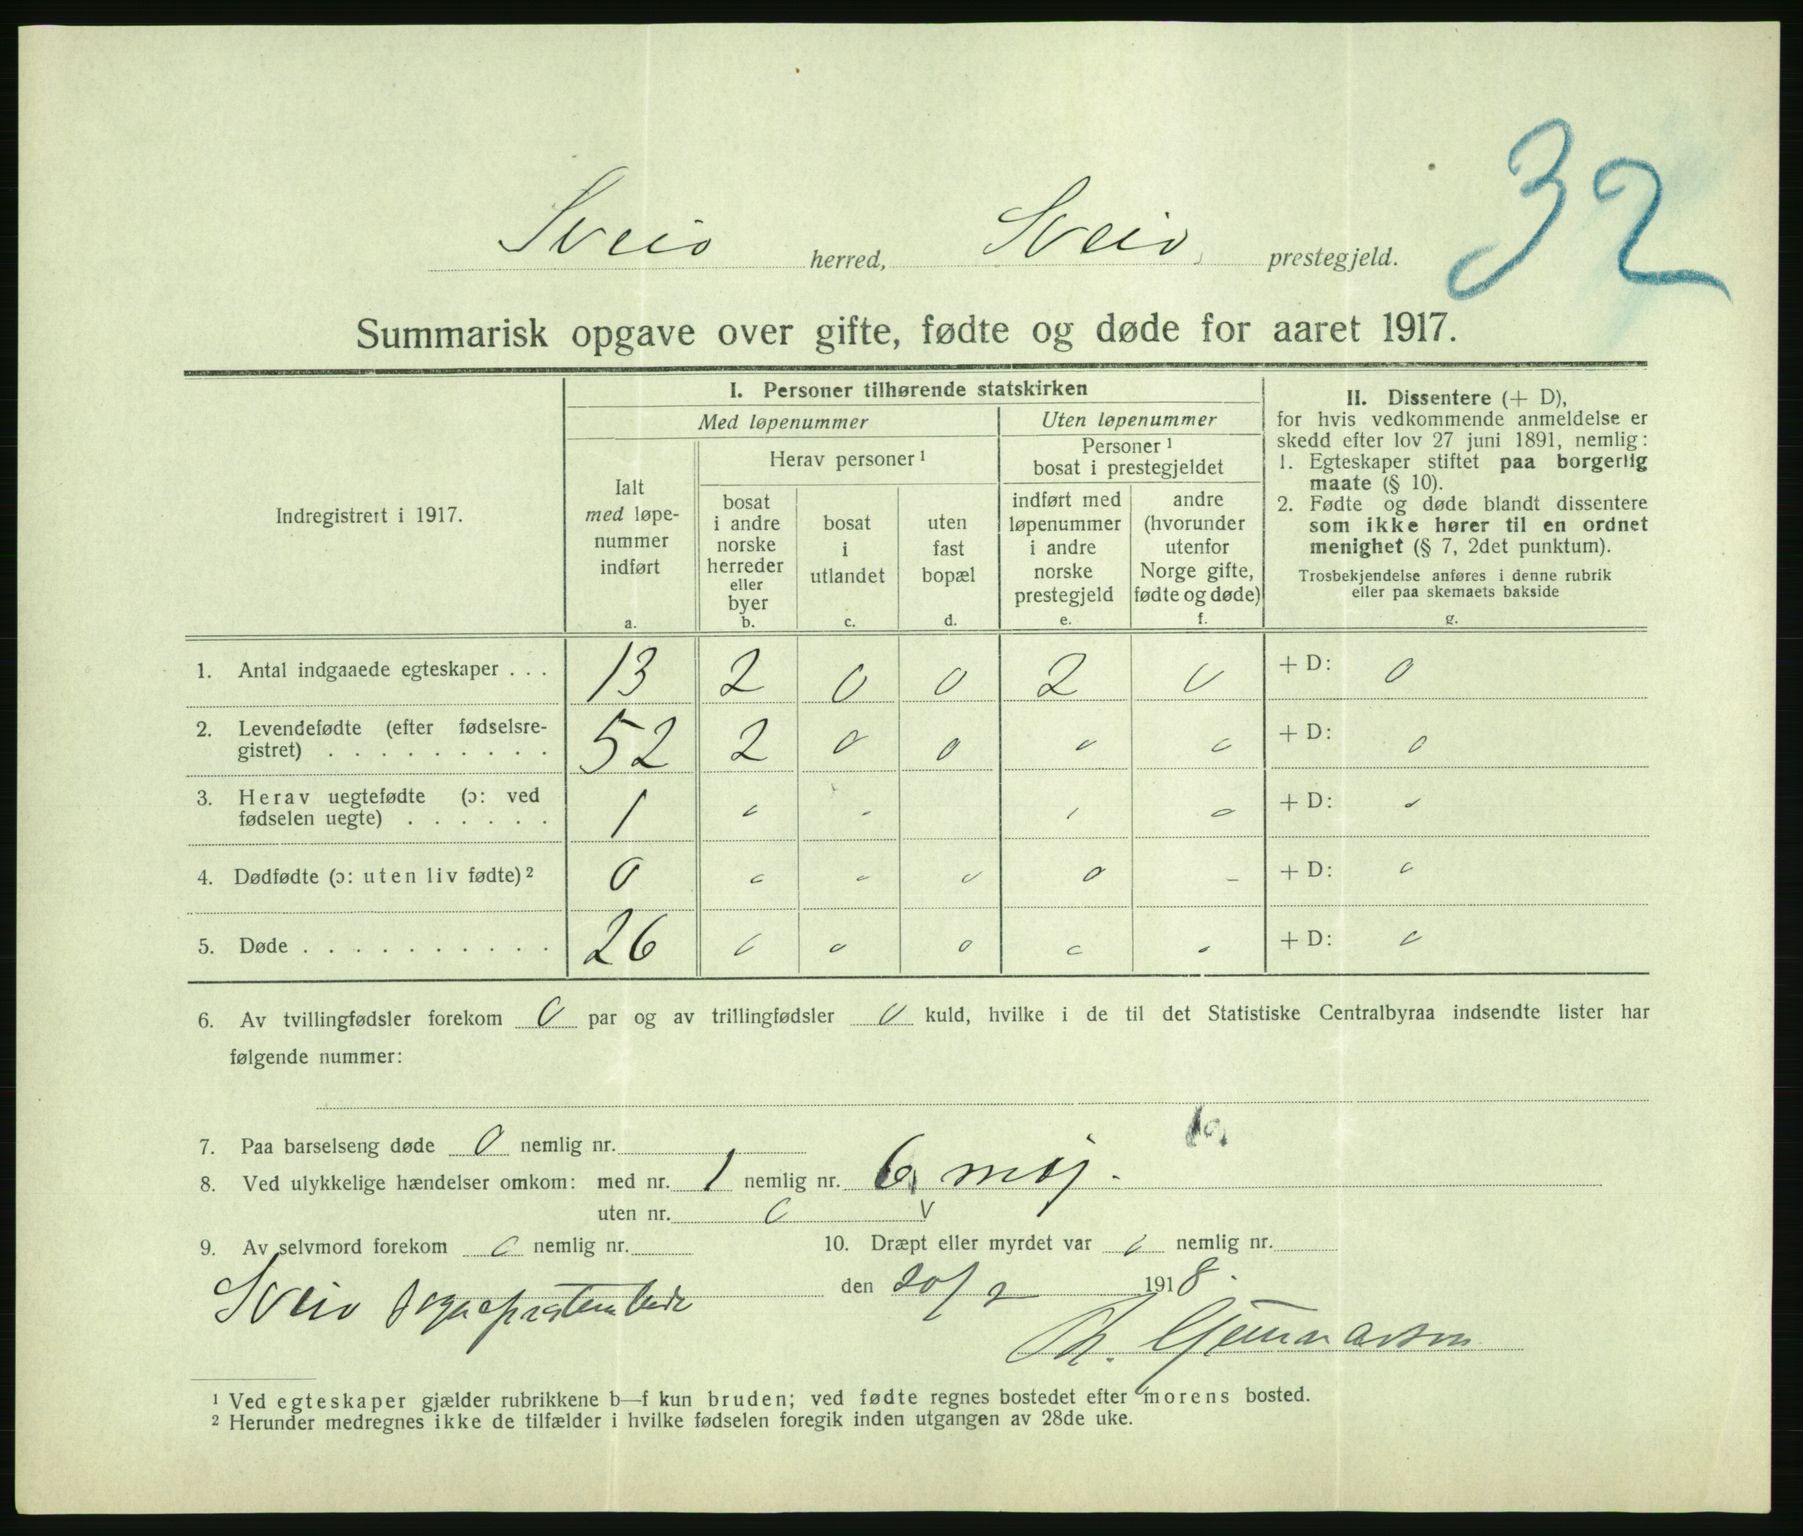 32
Sveio herred, Sveio prestegjeld.
Summarisk opgave over gifte, fødte og døde for aaret 1917.
Indregistrert i 1917.
I. Personer tilhørende statskirken
Med løpenummer
Uten løpenummer
Ialt
med løpe-
nummer
indført
a.
Herav personer ¹
bosat
i andre
norske
herreder
eller
byer
b.
bosat
i
utlandet
c.
uten
fast
bopæl
d.
Personer ¹
bosat i prestegjeldet
indført med
løpenummer
i andre
norske
prestegjeld
e.
andre
(hvorunder
utenfor
Norge gifte,
fødte og døde)
f.
II. Dissentere (+ D),
for hvis vedkommende anmeldelse er
skedd efter lov 27 juni 1891, nemlig:
1. Egteskaper stiftet paa borgerlig
maate (§ 10).
2. Fødte og døde blandt dissentere
som ikke hører til en ordnet
menighet (§ 7, 2det punktum).
Trosbekjendelse anføres i denne rubrik
eller paa skemaets bakside
g.
1. Antal indgaaede egteskaper . . . 13 2 0 0 2 0 + D: 0
2. Levendefødte (efter fødselsre-
gistret) . . . . . . . . . 52 2 0 0 0 0 + D: 0
3. Herav uegtefødte (ɔ: ved
fødselen uegte) . . . . . . 1 0 - 0 + D: 0
4. Dødfødte (ɔ: uten liv fødte) ² 0 0 0 0 0 - + D: 0
5. Døde . . . . . . . . . . 26 0 0 0 0 0 + D: 0
6. Av tvillingfødsler forekom 0 par og av trillingfødsler 0 kuld, hvilke i de til det Statistiske Centralbyraa indsendte lister har
følgende nummer:
7. Paa barselseng døde 0 nemlig nr.
8. Ved ulykkelige hændelser omkom: med nr. 1 nemlig nr. 6,
uten nr. 0 v
9. Av selvmord forekom 0 nemlig nr. 10. Dræpt eller myrdet var 0 nemlig nr.
Sveio den 20/2 1918.
Th.
¹ Ved egteskaper gjælder rubrikkene b—f kun bruden; ved fødte regnes bostedet efter morens bosted.
² Herunder medregnes ikke de tilfælder i hvilke fødselen foregik inden utgangen av 28de uke.